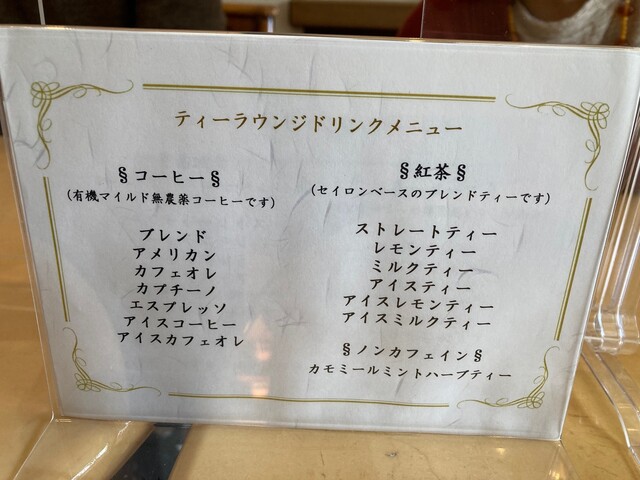 ティーラウンジドリンクメニュー
§コーヒー§
(有機マイルド無農薬コーヒーです)
ブレンド
アメリカン
カフェオレ
カプチーノ
エスプレッソ
アイスコーヒー
アイスカフェオレ
§紅茶§
(セイロンベースのブレンドティーです)
ストレートティー
レモンティー
ミルクティー
アイスティー
アイスレモンティー
アイスミルクティー
§ノンカフェイン§
カモミールミントハーブティー